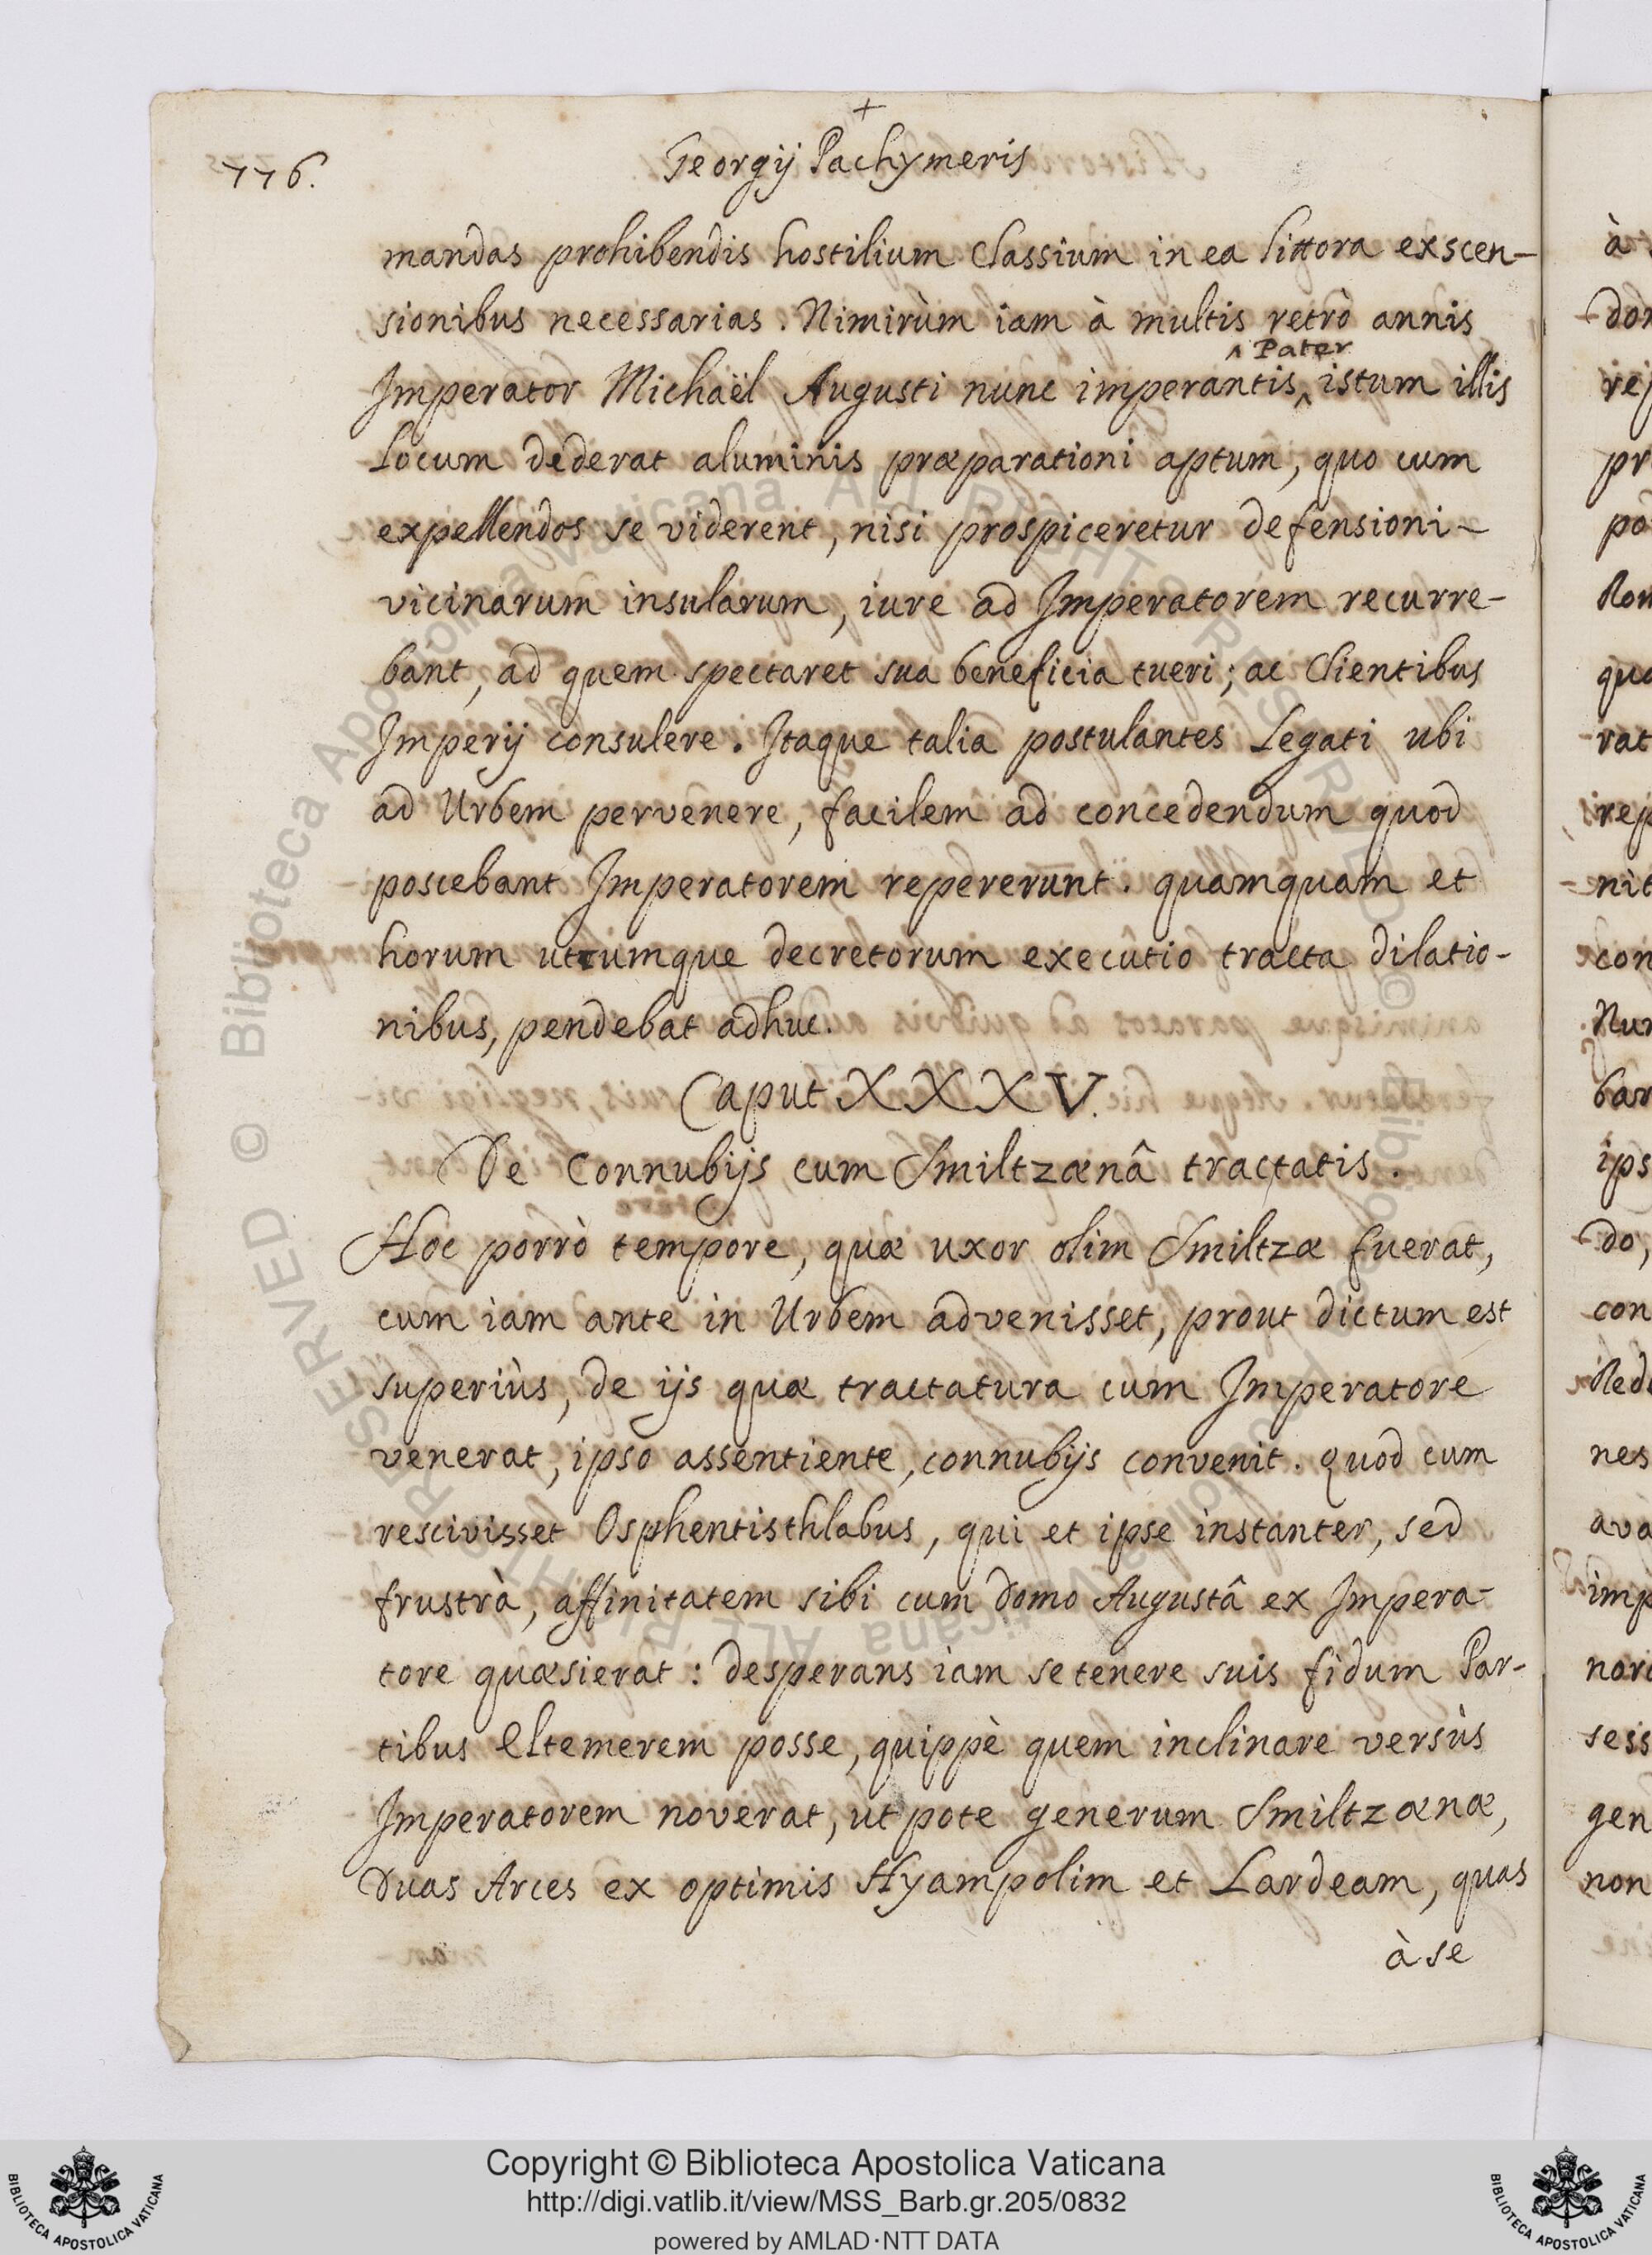 +
776. Georgij Pachymeris
mandas prohibendis hostilium Classium in ea littora exscen-
sionibus necessarias. Nimirùm iam à multis retrò annis
^ Pater
Imperator Michaël Augusti nunc imperantis ^ istum illis
Locum dederat aluminis præparationi aptum, quo cum
expellendos se viderent, nisi prospiceretur defensioni-
vicinarum insularum, iure ad Imperatorem recurre-
bant, ad quem spectaret sua beneficia tueri; ac Clientibus
Imperij consulere. Itaque talia postulantes Legati ubi
ad Urbem pervenere, facilem ad concedendum quod
poscebant Imperatorem repererunt. quamquam et
horum utrumque decretorum executio tracta dilatio-
nibus, pendebat adhuc.
Caput XXXV.
De Connubijs cum Smiltzænâ tractatis.
Hoc porrò tempore, quæ uxor olim Smiltzæ fuerat,
cum iam ante in Urbem advenisset, prout dictum est
superiùs, de ijs quæ tractatura cum Imperatore
venerat, ipso assentiente, connubijs convenit. quod cum
rescivisset Osphentisthlabus, qui et ipse instanter, sed
frustrà, affinitatem sibi cum domo Augustâ ex Impera-
tore quæsierat: desperans iam se tenere suis fidum Par-
tibus Eltemerem posse, quippè quem inclinare versùs
Imperatorem noverat, ut pote generum Smiltzænæ,
Duas Arces ex optimis Hyampolim et Lardeam, quas
à se
Copyright © Biblioteca Apostolica Vaticana
http://digi.vatlib.it/view/MSS_Barb.gr.205/0832
powered by AMLAD·NTT DATA
BIBLIOTECA APOSTOLICA VATICANA
BIBLIOTECA APOSTOLICA VATICANA